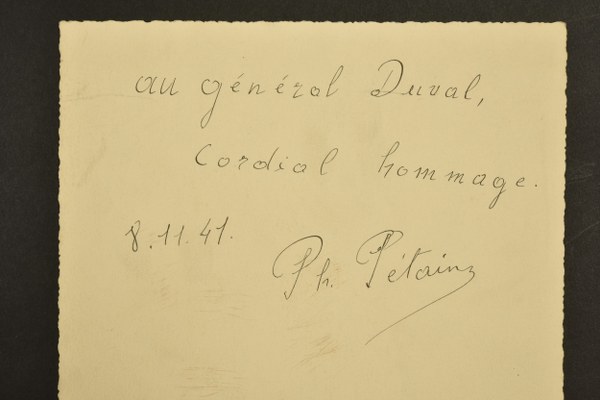 au général Duval,
Cordial hommage.
8.11.41.
Ph. Pétain